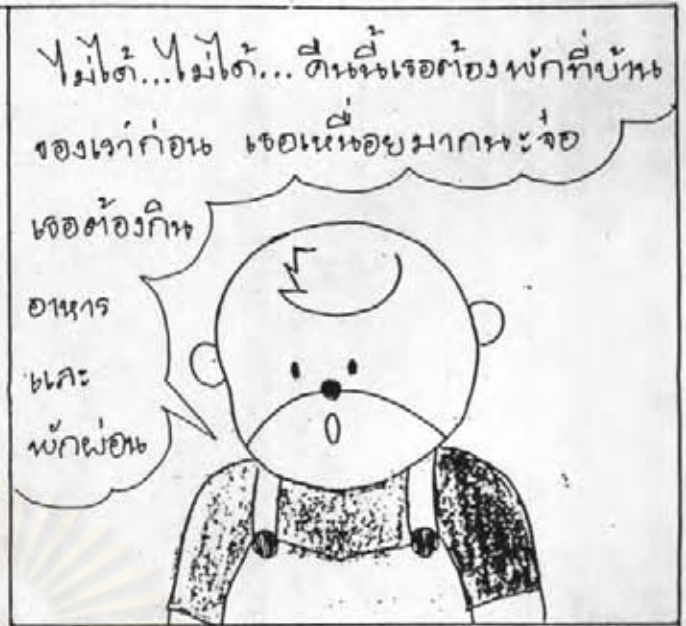 ไม่ได้...ไม่ได้... คืนนี้เธอต้องพักที่บ้าน
ของเราก่อน เธอเหนื่อยมากนะจ๋อ
เธอต้องกิน
อาหาร
และ
พักผ่อน